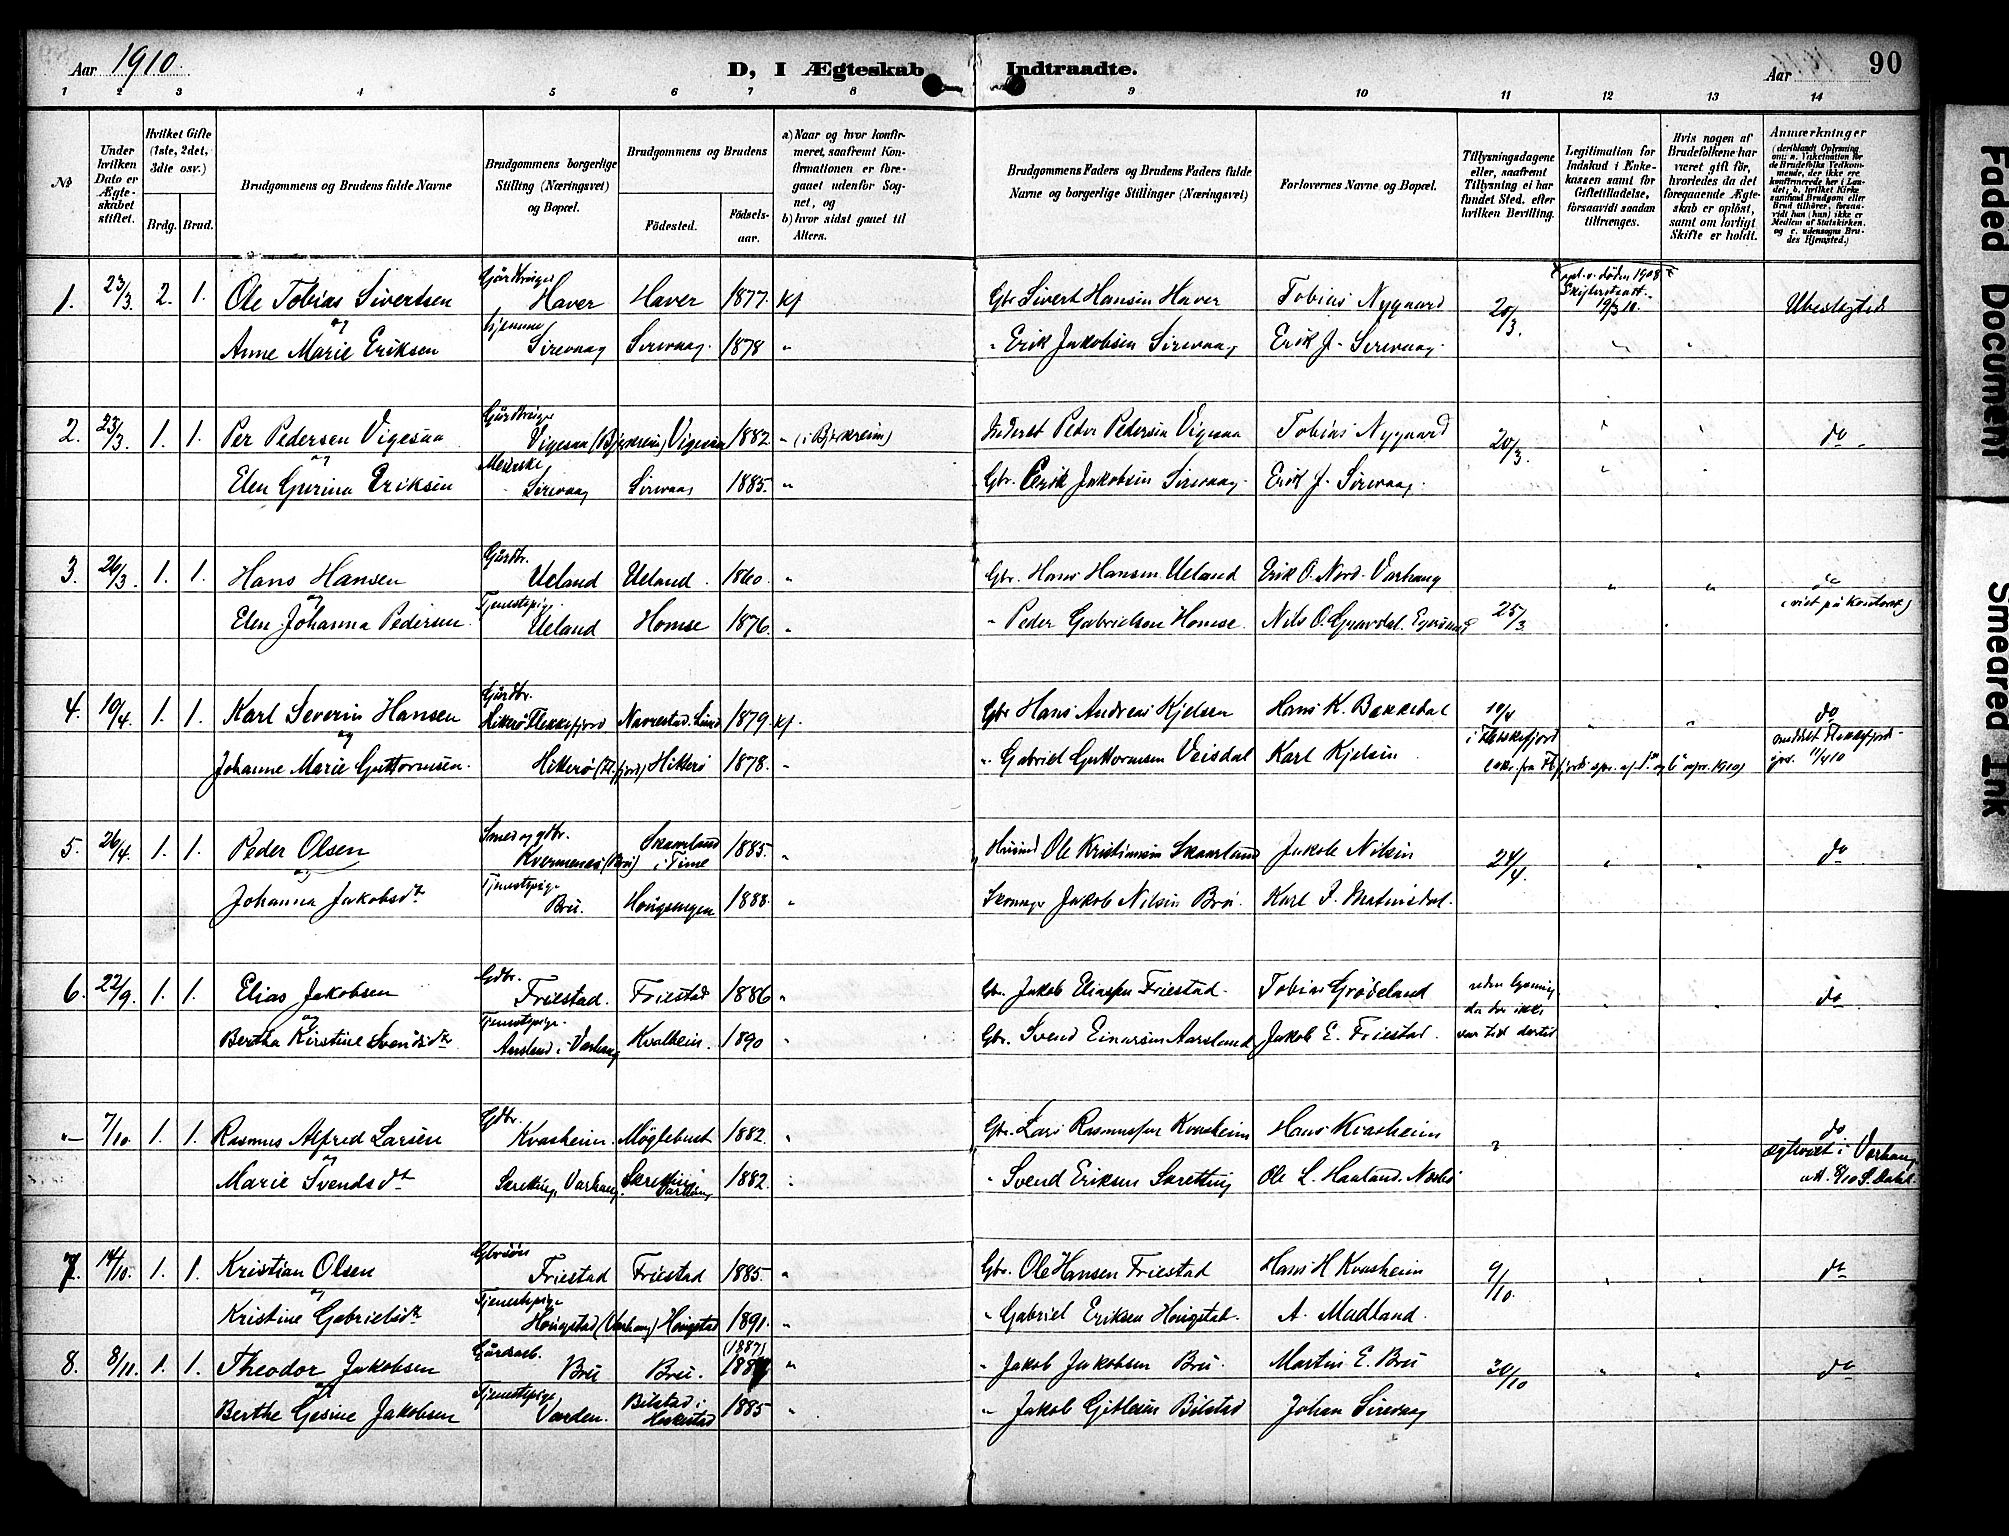 Aar 1910.
D, I Ægteskab Indtraadte.
Aar
90
1 2 3 4 5 6 7 8 9 10 11 12 13 14
№
Under hvilken Dato er Ægteskabet stiftet.
Hvilket Gifte (1ste, 2det, 3die osv.)
Brdg. Brud.
Brudgommens og Brudens fulde Navne
Brudgommens borgerlige Stilling (Næringsvei) og Bopæl.
Brudgommens og Brudens
Fødested.
Fødselsaar.
a) Naar og hvor konfirmeret, saafremt Konfirmationen er foregaaet udenfor Sognet, og
b) hvor sidst gaaet til Alters.
Brudgommens Faders og Brudens Faders fulde Navne og borgerlige Stillinger (Næringsvei)
Forlovernes Navne og Bopæl.
Tillysningsdagene eller, saafremt Tillysning ei har fundet Sted, efter hvilken Bevilling.
Legitimation for Indskud i Enkekassen samt for Giftetilladelse, forsaavidt saadan tiltrænges.
Hvis nogen af Brudefolkene har været gift før, hvorledes da det foregaaende Ægteskab er opløst, samt om lovligt Skifte er holdt.
Anmærkninger (deriblandt Oplysning om: a. Vakcination for de Brudefolks Vedkommende, der ikke ere konfirmerede her i Landet, b. hvilket Kirkesamfund Brudgom eller Brud tilhører, forsaavidt han (hun) ikke er Medlem af Statskirken, og c. udensogns Brudes Hjemsted.)
1. 23/3 2. 1. Ole Tobias Sivertsen Gårdbruger Haver Haver 1877. kf Gbr Sivert Hansen Haver Tobias Nygaard 20/3. døden 1908 Skifteratt. 19/3 10. Ubeslægtede
og
Anne Marie Eriksen hjemme Sirevaag Sirevaag. 1878 " " Erik Jakobsen Sirevaag Erik J. Sirevaag.
2. 23/3. 1. 1. Per Pedersen Vigesaa Gårdbruger Vigesaa (Bjerkreim) Vigesaa 1882. " (i Bjerkreim) Peder Pedersen Vigesaa Tobias Nygaard 20/3. do
og
Elen Gurina Eriksen Meierske Sirevaag Sirevaag 1885. " Gbr. Erik Jakobsen Sirevaag. Erik J. Sirevaag.
3. 26/3. 1. 1. Hans Hansen Gårdbr. Ueland Ueland. 1860. " Gbr. Hans Hansen Ueland Erik O. Nord-Varhaug do
og
Elen Johanna Pedersen Tjenestepige Ueland Homse 1876. " " Peder Gabrielsen Homse. Nils O. Gravdal. 25/3. (viet på kontoret)
4. 10/4. 1. 1. Karl Severin Hansen Gårdbr. Hitterø Flekkefjord Navrestad. Lund 1879. kf. Gbr Hans Andreas Kjelsen Hans K. Bakkedal 10/4 do
og
Johanne Marie Guttormsen. Hitterø (Fl.fjord) Hitterø 1878. " " Gabriel Guttormsen Veisdal Karl Kjelsen i Flekkefjord 11/4 10
5. 26/4. 1. 1. Peder Olsen Smed og gdbr. Kvermenes (Bru) Skaarland i Time 1885. " Ole Kristiansen Skaarland Jakob Nilsen 24/4. do
og
Johanna Jakobsdt. Tjenestepige Bru. 1888. " Jakob Nilsen Bru. Karl J.
6. 22/9. 1. 1. Elias Jakobsen Gdbr. Friestad. Friestad 1886 " Gbr. Jakob Eliassen Friestad. Tobias Grødeland uden lysning do
og
Bertha Kirstine Svendsdt. Tjenestepige. Aarsland i Varhaug Kvalbein. 1890 " Gbr. Svend Einarsen Aarsland Jakob E. Friestad. da der ikke var tid dertil
" 7/10. 1. 1. Rasmus Alfred Larsen Gdbr. Kvasheim. Møglebust 1882. " Gbr. Lars Rasmussen Kvasheim Hans Kvasheim do
og
Marie Svendsdt Skretting, Varhaug. Skretting Varhaug 1882. " " Svend Eriksen Skretting Ole L. Haaland. Nærbø ægteviet i Varhaug
7. 14/10. 1. 1. Kristian Olsen Gbrsøn Friestad Friestad 1885. " Gbr. Ole Hansen Friestad Hans H Kvasheim 9/10. do
og
Kristine Gabrielsdt. Tjenestepige Hougstad (Varhaug) Hougstad 1891. " " Gabriel Eriksen Hougstad. A. Madland.
8. 8/11. 1. 1. Theodor Jakobsen Gårdarb. Bru Bru. (1887) 1887 " " Jakob Jakobsen Bru. Martin E. Bru 30/10 do
og
Berthe Gesine Jakobsen Tjenestepige Varden. Bilstad i Heskestad 1885 " " Jakob Gitlesen Bilstad Johan Sirevaag
Faded Document
Smeared Ink